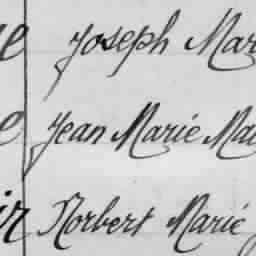 Joseph Mar
Jean Marie Mau
Norbert Marie